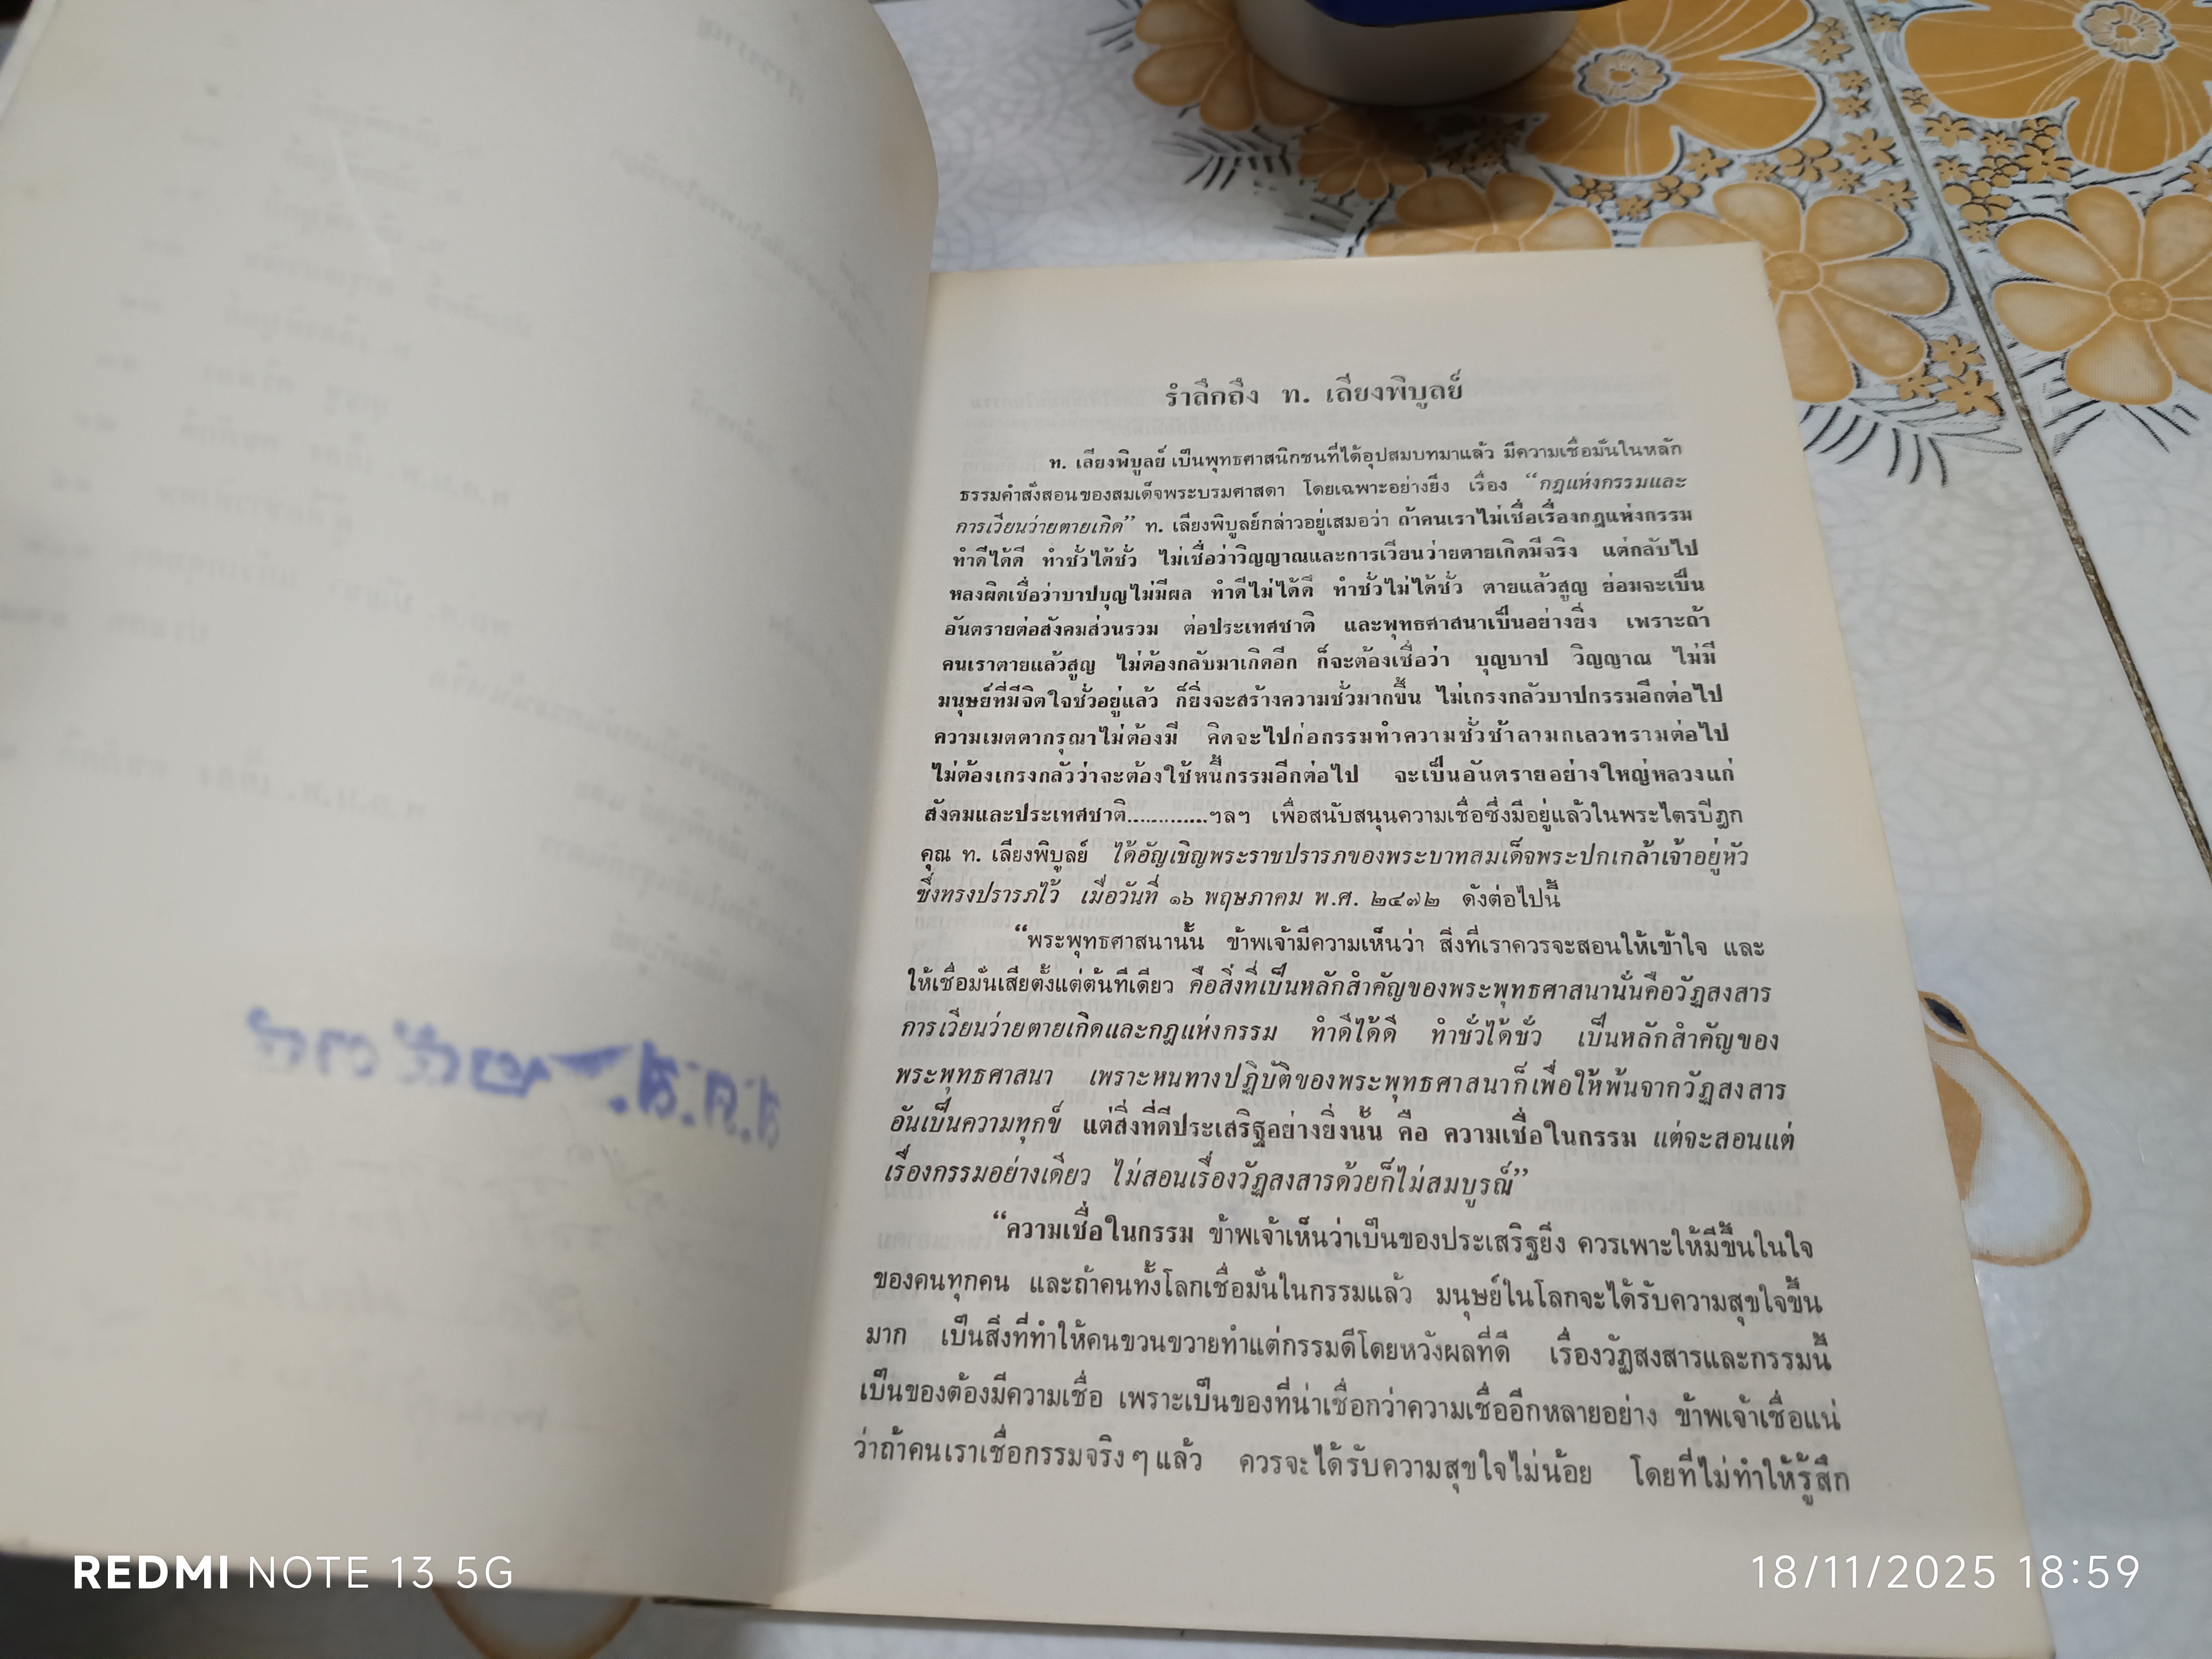 รำลึกถึง ท. เลียงพิบูลย์
ท. เลียงพิบูลย์ เป็นพุทธศาสนิกชนที่ได้อุปสมบทมาแล้ว มีความเชื่อมั่นในหลัก
ธรรมคำสั่งสอนของสมเด็จพระบรมศาสดา โดยเฉพาะอย่างยิ่ง เรื่อง “กฎแห่งกรรมและ
การเวียนว่ายตายเกิด” ท. เลียงพิบูลย์กล่าวอยู่เสมอว่า ถ้าคนเราไม่เชื่อเรื่องกฎแห่งกรรม
ทำดีได้ดี ทำชั่วได้ชั่ว ไม่เชื่อว่าวิญญาณและการเวียนว่ายตายเกิดมีจริง แต่กลับไป
หลงผิดเชื่อว่าบาปบุญไม่มีผล ทำดีไม่ได้ดี ทำชั่วไม่ได้ชั่ว ตายแล้วสูญ ย่อมจะเป็น
อันตรายต่อสังคมส่วนรวม ต่อประเทศชาติ และพุทธศาสนาเป็นอย่างยิ่ง เพราะถ้า
คนเราตายแล้วสูญ ไม่ต้องกลับมาเกิดอีก ก็จะต้องเชื่อว่า บุญบาป วิญญาณ ไม่มี
มนุษย์ที่มีจิตใจชั่วอยู่แล้ว ก็ยิ่งจะสร้างความชั่วมากขึ้น ไม่เกรงกลัวบาปกรรมอีกต่อไป
ความเมตตากรุณาไม่ต้องมี คิดจะไปก่อกรรมทำความชั่วช้าลามกเลวทรามต่อไป
ไม่ต้องเกรงกลัวว่าจะต้องใช้หนี้กรรมอีกต่อไป จะเป็นอันตรายอย่างใหญ่หลวงแก่
สังคมและประเทศชาติ............ฯลฯ เพื่อสนับสนุนความเชื่อซึ่งมีอยู่แล้วในพระไตรปิฎก
คุณ ท. เลียงพิบูลย์ ได้อัญเชิญพระราชปรารภของพระบาทสมเด็จพระปกเกล้าเจ้าอยู่หัว
ซึ่งทรงปรารภไว้ เมื่อวันที่ ๑๖ พฤษภาคม พ.ศ. ๒๔๗๒ ดังต่อไปนี้
“พระพุทธศาสนานั้น ข้าพเจ้ามีความเห็นว่า สิ่งที่เราควรจะสอนให้เข้าใจ และ
ให้เชื่อมั่นเสียตั้งแต่ต้นทีเดียว คือสิ่งที่เป็นหลักสำคัญของพระพุทธศาสนานั่นคือวัฏสงสาร
การเวียนว่ายตายเกิดและกฎแห่งกรรม ทำดีได้ดี ทำชั่วได้ชั่ว เป็นหลักสำคัญของ
พระพุทธศาสนา เพราะหนทางปฏิบัติของพระพุทธศาสนาก็เพื่อให้พ้นจากวัฏสงสาร
อันเป็นความทุกข์ แต่สิ่งที่ดีประเสริฐอย่างยิ่งนั้น คือ ความเชื่อในกรรม แต่จะสอนแต่
เรื่องกรรมอย่างเดียว ไม่สอนเรื่องวัฏสงสารด้วยก็ไม่สมบูรณ์”
“ความเชื่อในกรรม ข้าพเจ้าเห็นว่าเป็นของประเสริฐยิ่ง ควรเพาะให้มีขึ้นในใจ
ของคนทุกคน และถ้าคนทั้งโลกเชื่อมั่นในกรรมแล้ว มนุษย์ในโลกจะได้รับความสุขใจขึ้น
มาก เป็นสิ่งที่ทำให้คนขวนขวายทำแต่กรรมดีโดยหวังผลที่ดี เรื่องวัฏสงสารและกรรมนี้
เป็นของต้องมีความเชื่อ เพราะเป็นของที่น่าเชื่อกว่าความเชื่ออีกหลายอย่าง ข้าพเจ้าเชื่อแน่
ว่าถ้าคนเราเชื่อกรรมจริง ๆ แล้ว ควรจะได้รับความสุขใจไม่น้อย โดยที่ไม่ทำให้รู้สึก
REDMI NOTE 13 5G
18/11/2025 18:59